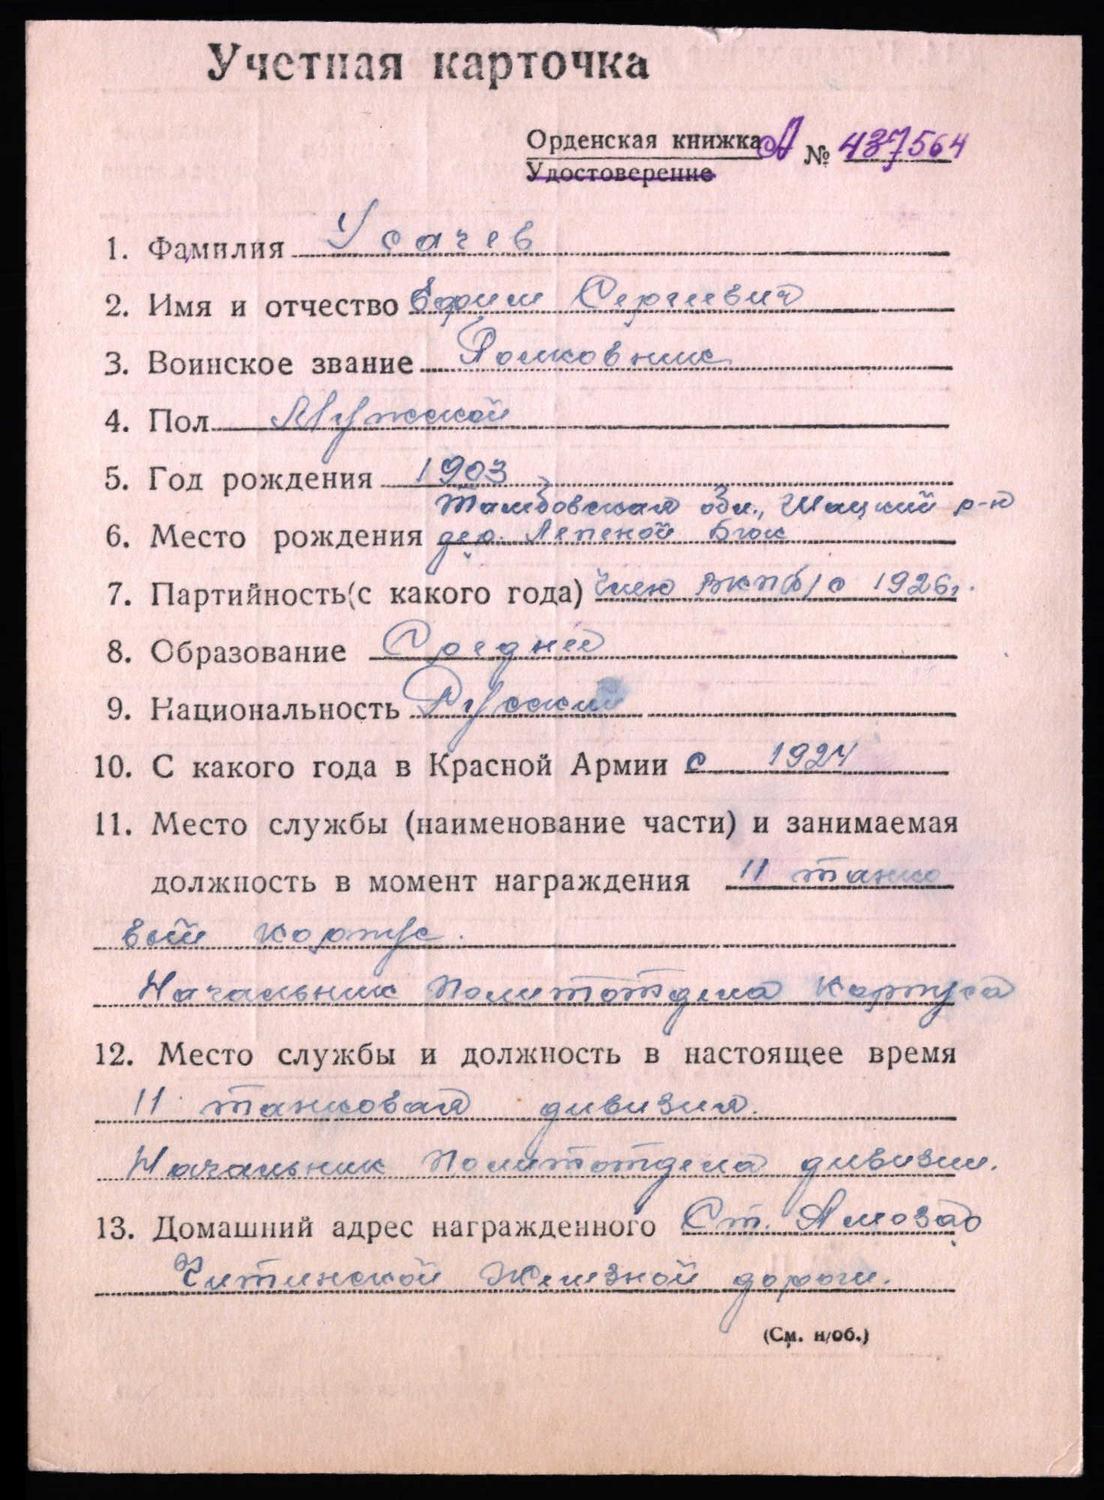 Учетная карточка
Орденская книжка А № 437564
Удостоверение
1. Фамилия Усачев
2. Имя и отчество Ефим Сергеевич
3. Воинское звание Полковник
4. Пол Мужской
5. Год рождения 1903
Тамбовская обл., Шацкий р-н
6. Место рождения дер. Лепеной
7. Партийность(с какого года) Член ВКП(б) с 1926г.
8. Образование Среднее
9. Национальность Русский
10. С какого года в Красной Армии с 1924
11. Место службы (наименование части) и занимаемая
должность в момент награждения 11 танко
вый корпус.
Начальник Политотдела Корпуса
12. Место службы и должность в настоящее время
11 танковая дивизия.
Начальник Политотдела дивизии.
13. Домашний адрес награжденного Ст. Амазар
Читинской Железной дороги.
(См. н/об.)